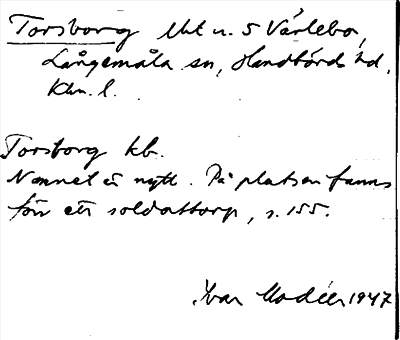 Torsborg Uht u. 5 Värlebo,
Långemåla sn, Handbörds hd,
Klm. l.
Torsborg kb.
Namnet är nytt. På platsen fanns
förr ett soldattorp, s. 155.
Ivar Modéer 1947